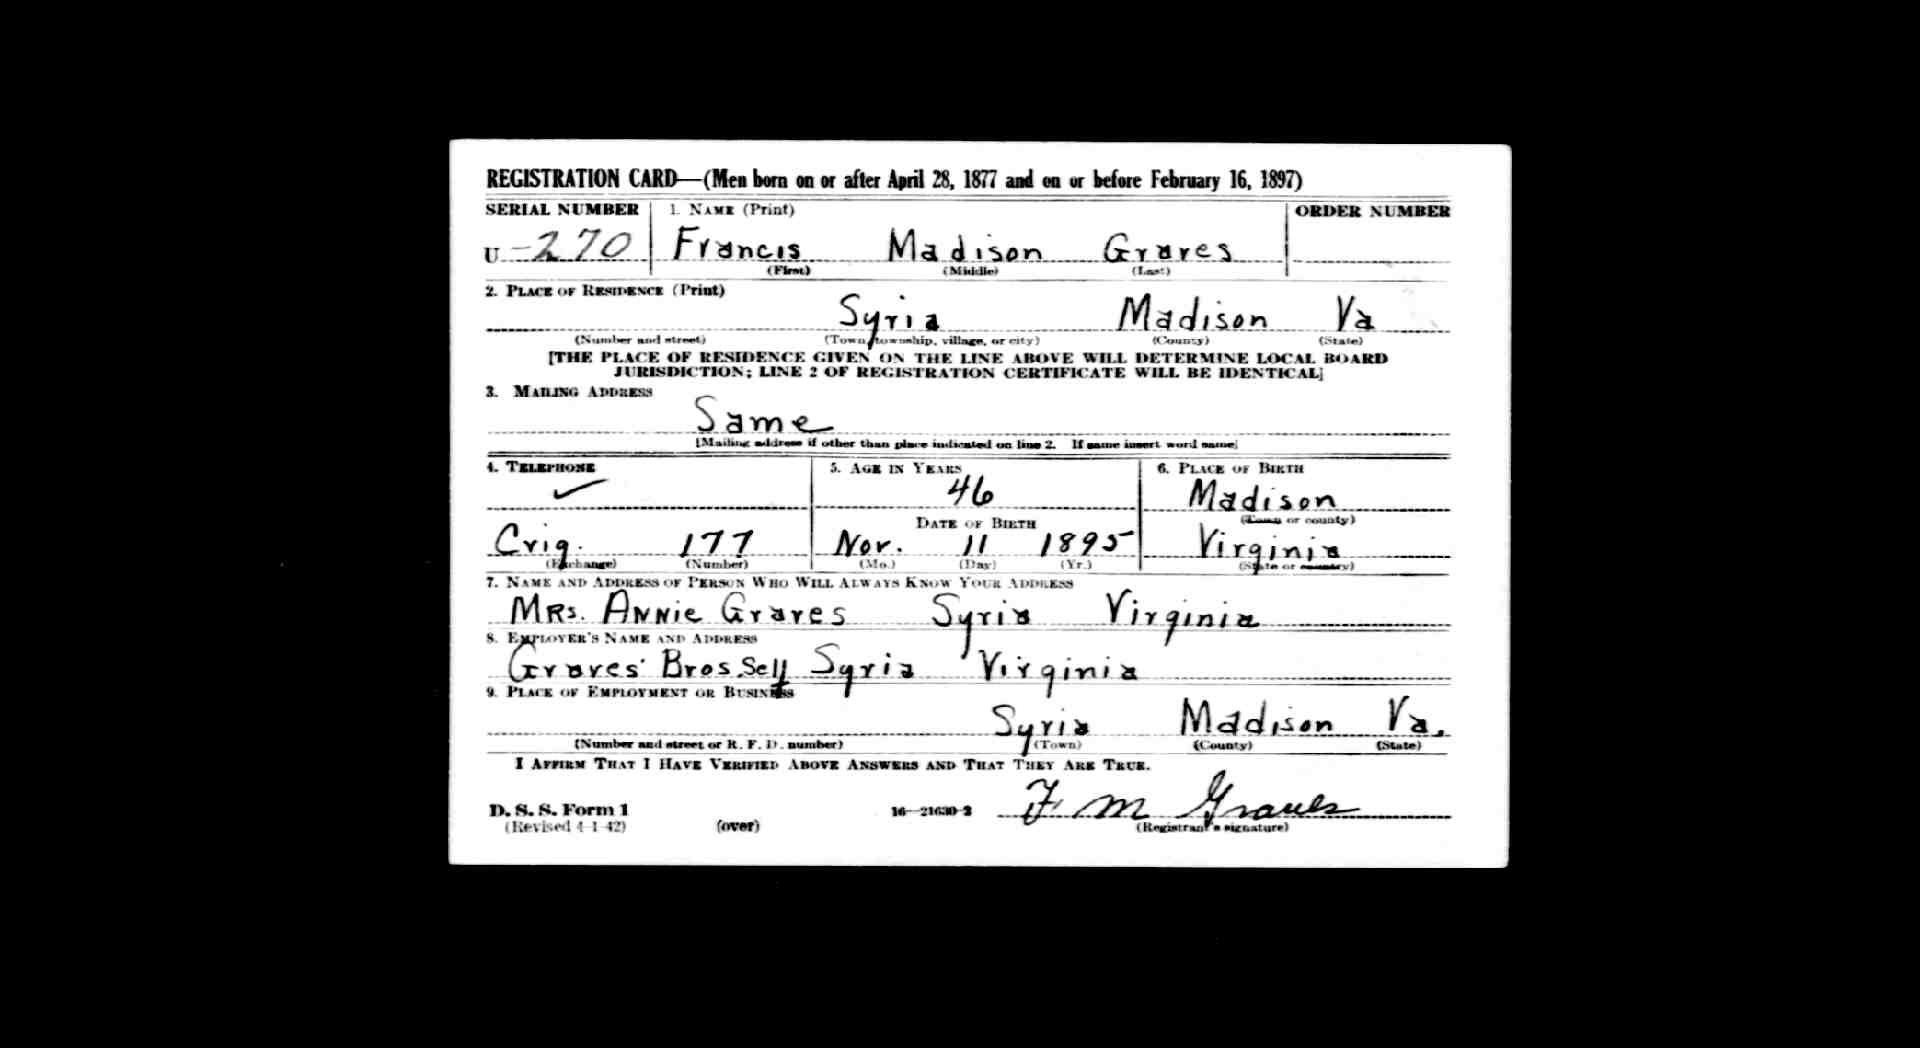 REGISTRATION CARD—(Men born on or after April 28, 1877 and on or before February 16, 1897)
SERIAL NUMBER 1. NAME (Print) ORDER NUMBER
U -270 Francis Madison Graves
(First) (Middle) (Last)
2. PLACE OF RESIDENCE (Print)
Syria Madison Va
(Number and street) (Town, township, village, or city) (County) (State)
[THE PLACE OF RESIDENCE GIVEN ON THE LINE ABOVE WILL DETERMINE LOCAL BOARD
JURISDICTION; LINE 2 OF REGISTRATION CERTIFICATE WILL BE IDENTICAL]
3. MAILING ADDRESS
Same
[Mailing address if other than place indicated on line 2. If same insert word same]
4. TELEPHONE 5. AGE IN YEARS 6. PLACE OF BIRTH
✓ 46 Madison
DATE OF BIRTH (Town or county)
Crig. 177 Nov. 11 1895 Virginia
(Exchange) (Number) (Mo.) (Day) (Yr.) (State or country)
7. NAME AND ADDRESS OF PERSON WHO WILL ALWAYS KNOW YOUR ADDRESS
MRS. ANNIE Graves Syria Virginia
8. EMPLOYER'S NAME AND ADDRESS
Graves' Bros. Self Syria Virginia
9. PLACE OF EMPLOYMENT OR BUSINESS
Syria Madison Va.
(Number and street or R. F. D. number) (Town) (County) (State)
I AFFIRM THAT I HAVE VERIFIED ABOVE ANSWERS AND THAT THEY ARE TRUE.
D. S. S. Form 1 16—21630-2 F M Graves
(Revised 4-1-42) (over) (Registrant's signature)